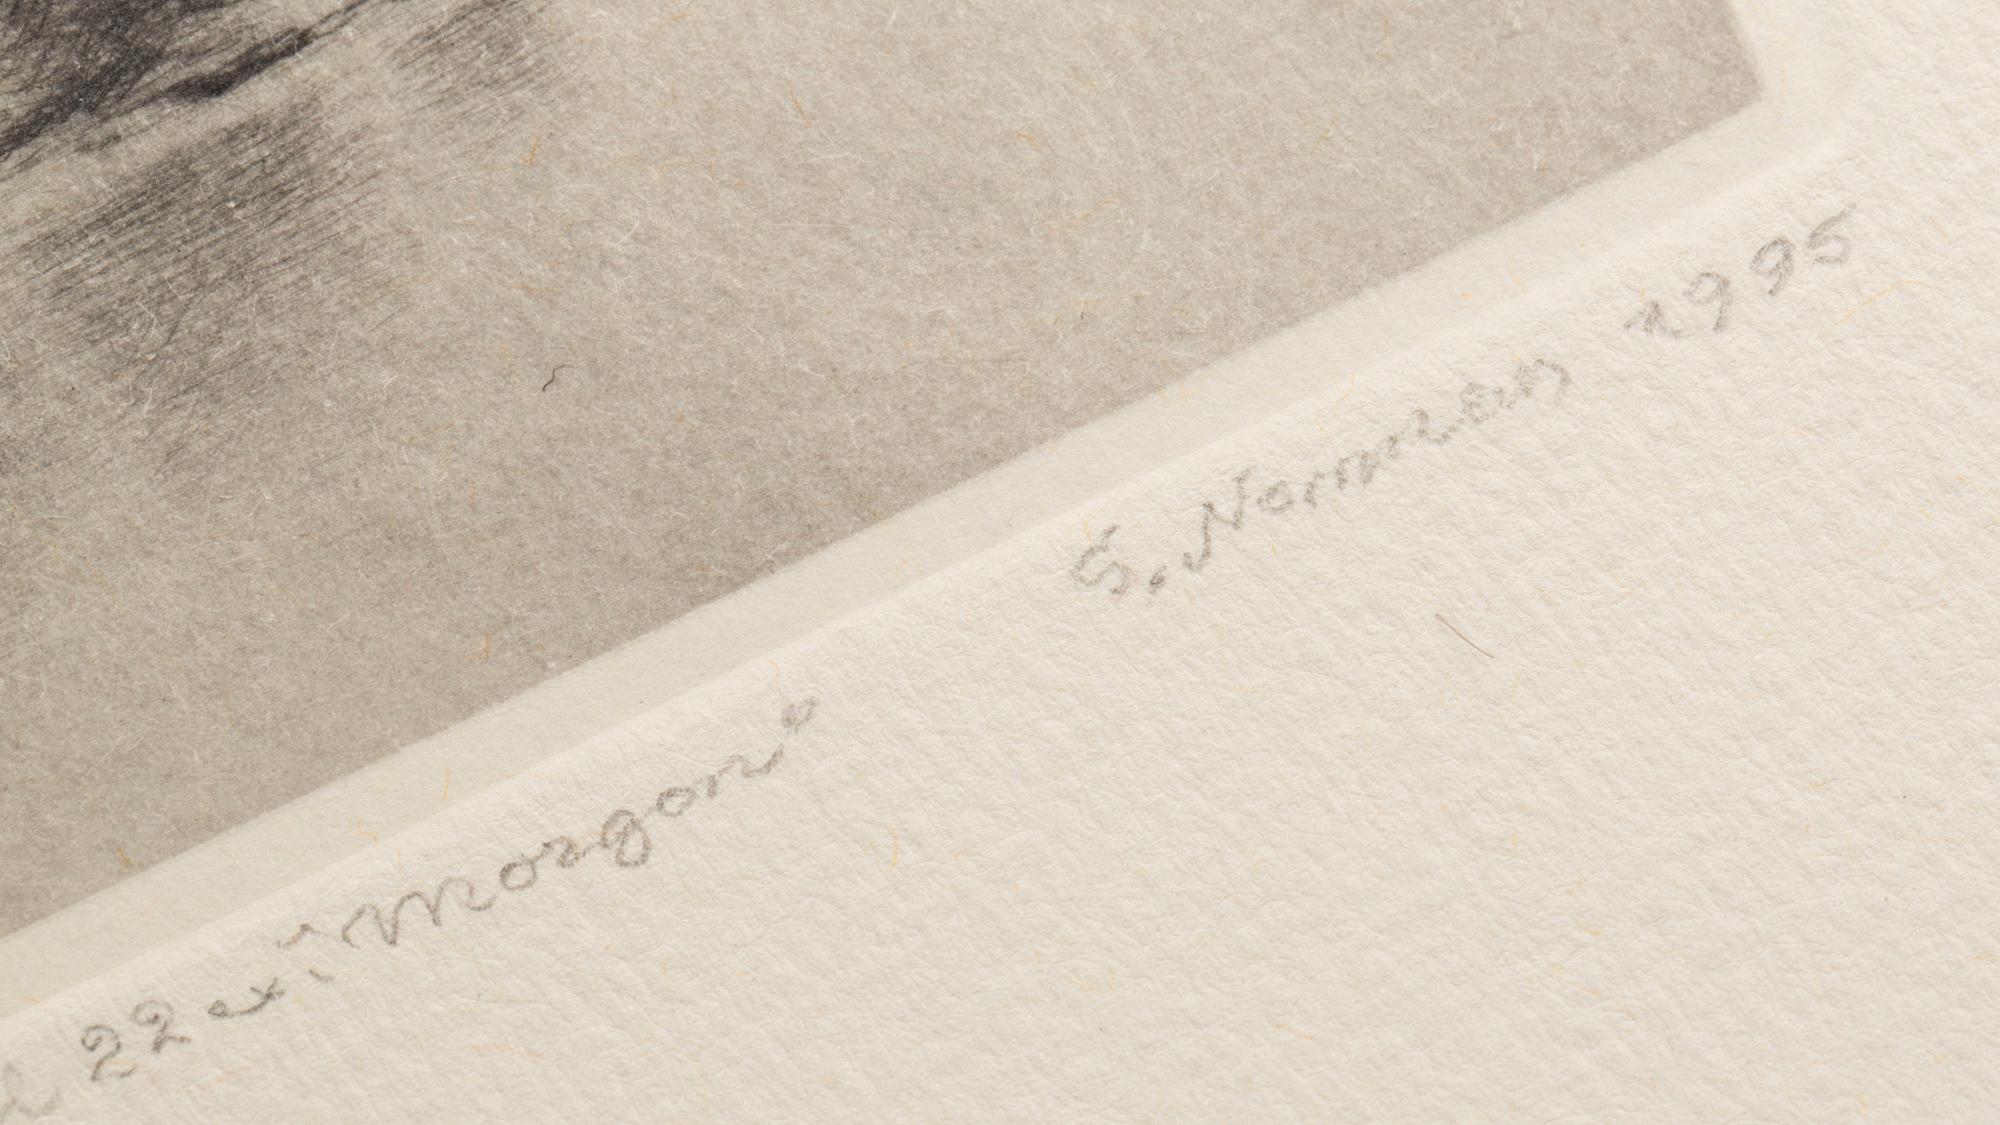 22 ex. "Morgon" S. Norrmén 1995